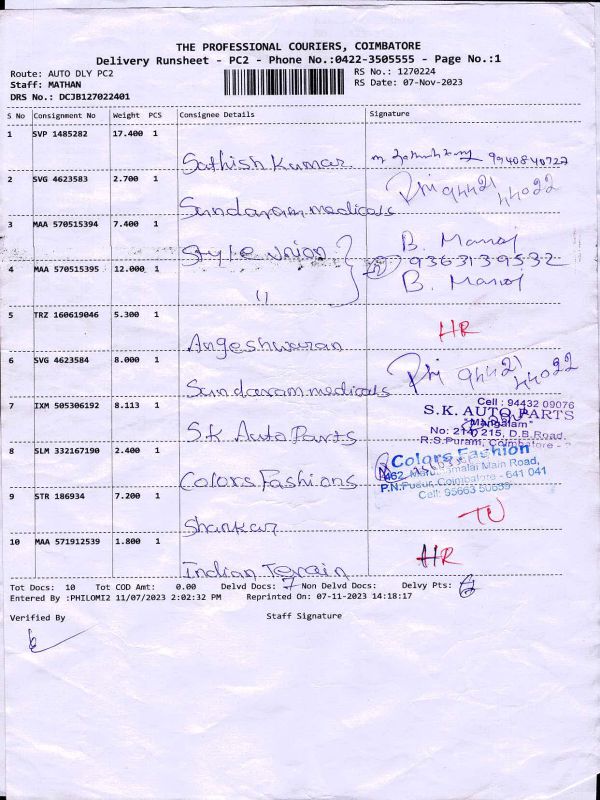 THE PROFESSIONAL COURIERS, COIMBATORE
Delivery Runsheet - PC2 - Phone No.:0422-3505555 - Page No.:1
Route: AUTO DLY PC2 RS No.: 1270224
Staff: MATHAN RS Date: 07-Nov-2023
DRS No.: DCJB127022401
S No Consignment No Weight PCS Consignee Details Signature
1 SVP 1485282 17.400 1 Sathish Kumar 9940840727
2 SVG 4623583 2.700 1 Sundaram medicals 94421 44022
3 MAA 570515394 7.400 1 Style union B. Manoj
9363139532
4 MAA 570515395 12.000 1 B. Manoj
5 TRZ 160619046 5.300 1 Angeshwaran HR
6 SVG 4623584 8.000 1 Sundaram medicals 94421 44022
7 IXM 505306192 8.113 1 S.K. Auto Parts
Cell : 94432 09076
S.K. AUTO PARTS
"Mangalam"
No: 214, 215, D.B.Road,
R.S.Puram, Coimbatore - 2
8 SLM 332167190 2.400 1 Colors Fashions
Colors Fashion
462, Marudhamalai Main Road,
P.N.Pudur, Coimbatore - 641 041
Cell:
9 STR 186934 7.200 1 Shankar
10 MAA 571912539 1.800 1 Indian Terain HR
Tot Docs: 10 Tot COD Amt: 0.00 Delvd Docs: 7 Non Delvd Docs: Delvy Pts: 6
Entered By :PHILOMI2 11/07/2023 2:02:32 PM Reprinted On: 07-11-2023 14:18:17
Verified By Staff Signature